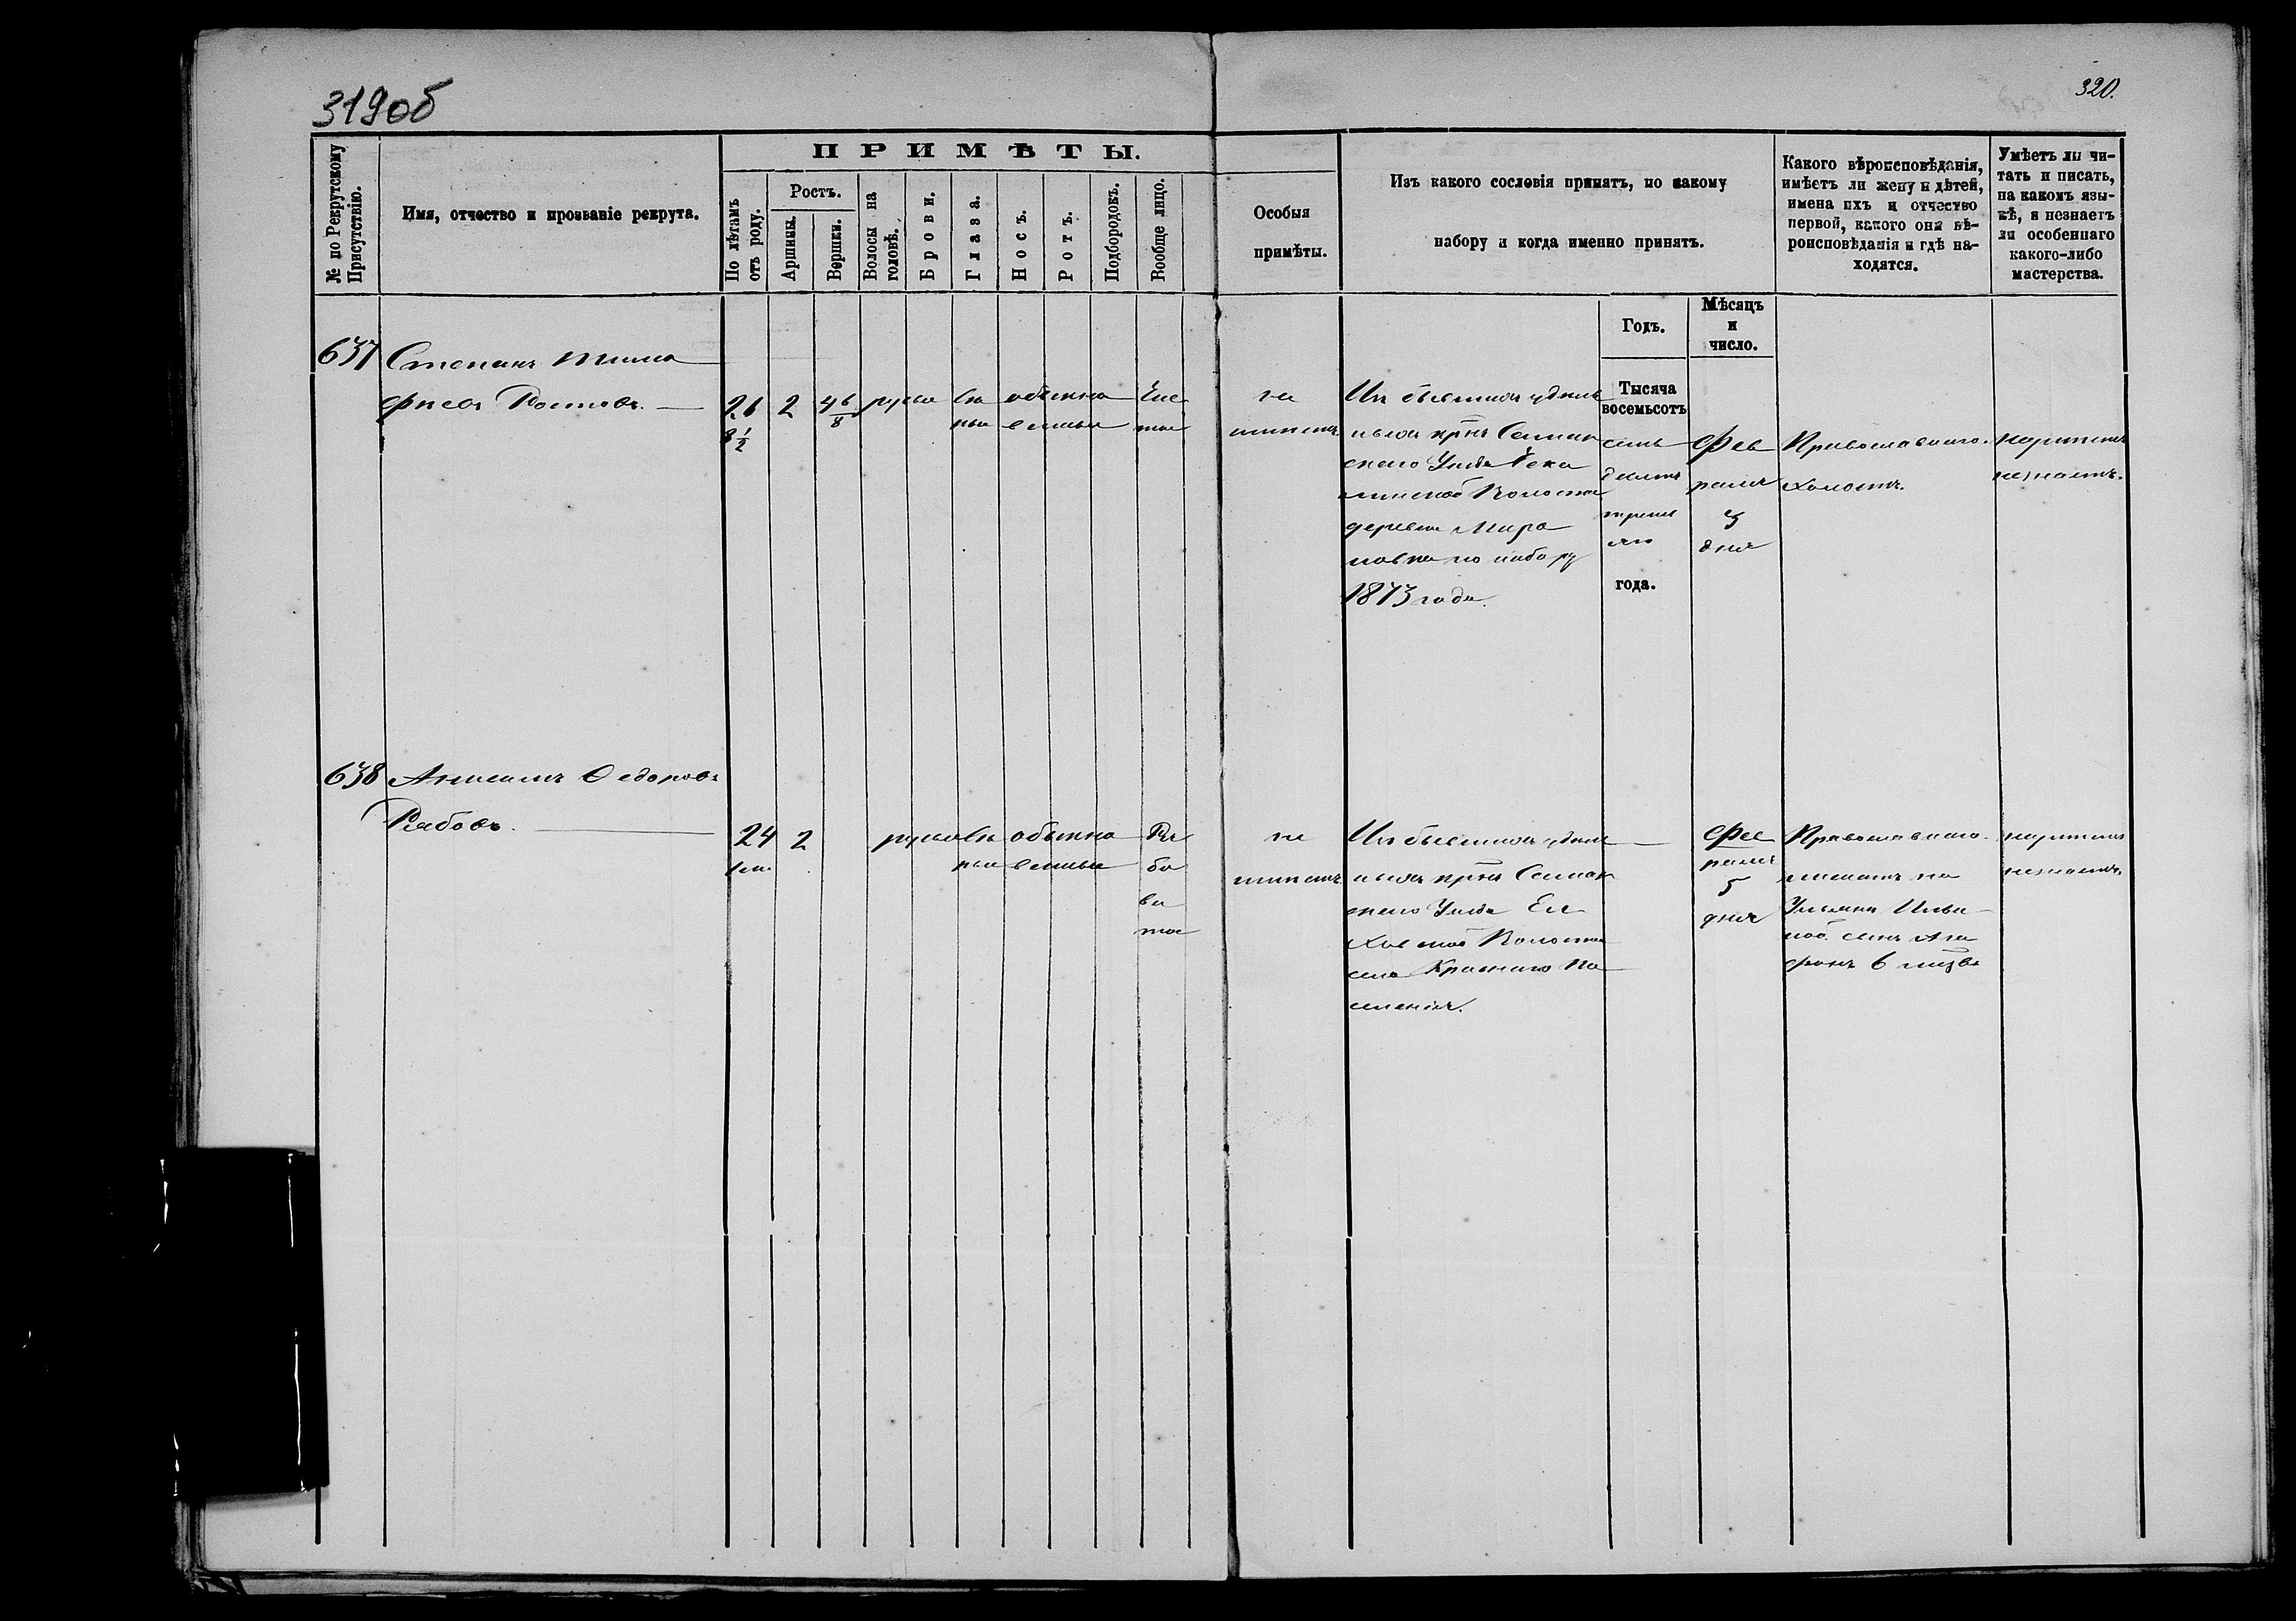 319об
320.
№ по Рекрутскому
Присутствію.
Имя, отчество и прозваніе рекрута.
ПРИМѢТЫ.
По лѣтамъ
отъ роду.
Ростъ.
Аршины.
Вершки.
Волосы на
головѣ.
Брови.
Глаза.
Носъ.
Ротъ.
Подбородокъ.
Вообще лицо.
Особыя
примѣты.
Изъ какого сословія принятъ, по какому
набору и когда именно принятъ.
Какого вѣроисповѣданія,
имѣетъ ли жену и дѣтей,
имена ихъ и отчество
первой, какого она вѣ-
роисповѣданія и гдѣ на-
ходятся.
Умѣетъ ли чи-
тать и писать,
на какомъ язы-
кѣ, и незнаетъ
ли особеннаго
какого-либо
мастерства.
Годъ.
Мѣсяцъ
и
число.
637
Степанъ Тимо
фѣевъ Ростовъ.
2
4 6/8
русы
сѣ
рые
обыкно
венные
чис
тое
не
имѣетъ
Изъ бывшихъ удѣль
ныхъ крнъ Самар
скаго Уѣзда Чека
линской Волости
деревни Миро
новки по набору
1873 года.
Тысяча
восемьсотъ
семь
десятъ
треть
яго
года.
Фев
раля
дня
Православнаго.
холостъ.
неграмотѣ
незнаетъ.
638
Анисимъ Ѳедоровъ
Рябовъ.
24
2
русы
сѣ
рые
обыкно
венные
Ря
бо
ва
тое
не
имѣетъ
Изъ бывшихъ удѣль
ныхъ крнъ Самар
скаго Уѣзда Ел
ховской Волости
села Краснаго По
селенія.
Фев
раля
5
дня
Православнаго.
женатъ на
Ульянѣ Ильи
ной. сынъ Ага
фонъ 6
неграмотѣ
незнаетъ.